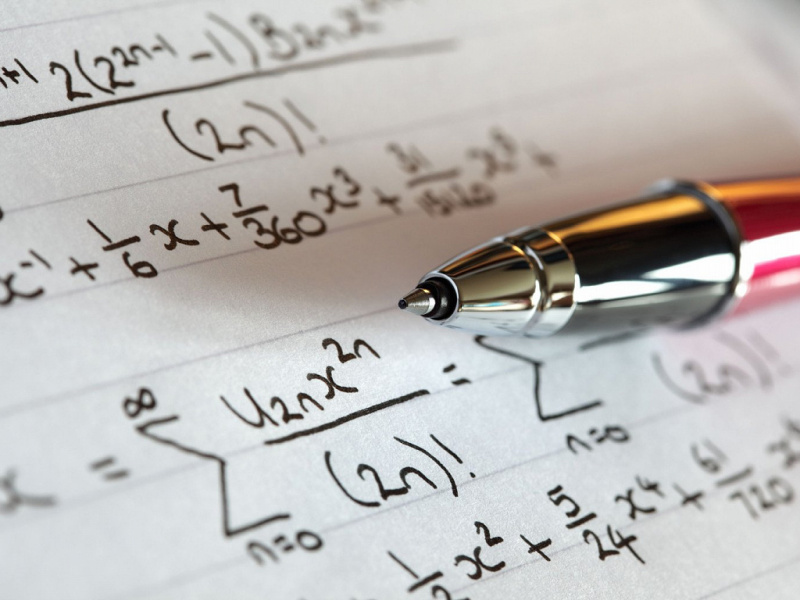 n+1 2(2²ⁿ⁻¹ -1)B2nx
(2n)!
x⁻¹ + 1/6 x + 7/360 x³ + 31/15120 x⁵ +
x = ∞ ∑ n=0 U2nx²ⁿ/(2n)! = ∑ n=0 (2n)!
1/2 x² + 5/24 x⁴ + 61/720 x